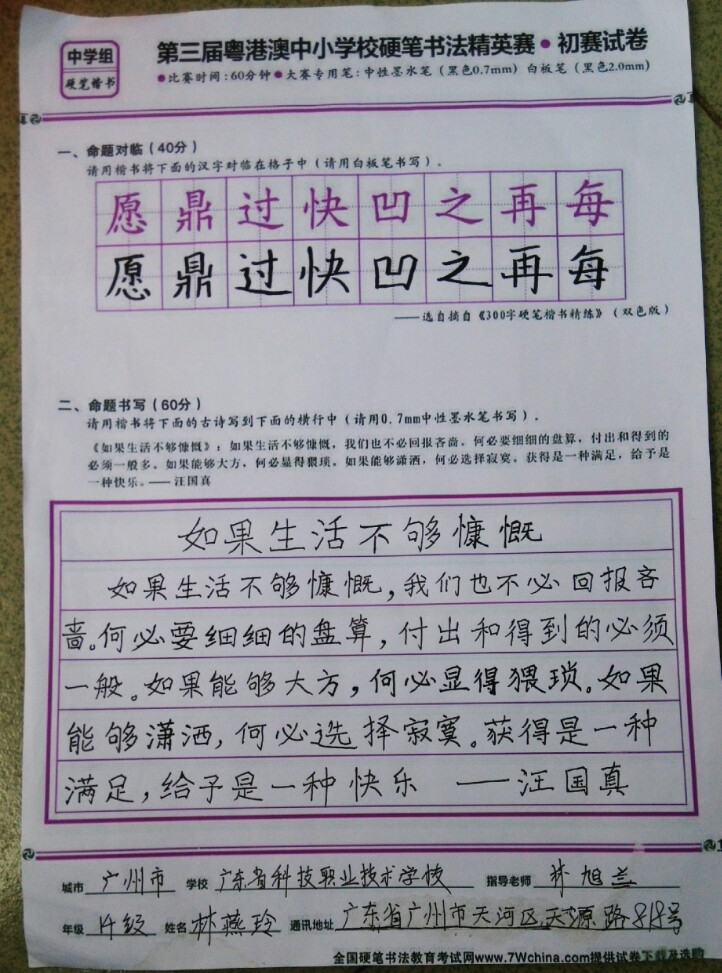 中学组
硬笔楷书
第三届粤港澳中小学校硬笔书法精英赛•初赛试卷
●比赛时间:60分钟●大赛专用笔:中性墨水笔(黑色0.7mm) 白板笔(黑色2.0mm)
一、命题对临(40分)
请用楷书将下面的汉字对临在格子中(请用白板笔书写)。
愿鼎过快凹之再每
愿鼎过快凹之再每
——选自摘自《300字硬笔楷书精练》(双色版)
二、命题书写(60分)
请用楷书将下面的古诗写到下面的横行中(请用0.7mm中性墨水笔书写)。
《如果生活不够慷慨》:如果生活不够慷慨,我们也不必回报吝啬。何必要细细的盘算,付出和得到的
必须一般多。如果能够大方,何必显得猥琐。如果能够潇洒,何必选择寂寞。获得是一种满足,给予是
一种快乐。——汪国真
如果生活不够慷慨
如果生活不够慷慨,我们也不必回报吝
啬。何必要细细的盘算,付出和得到的必须
一般。如果能够大方,何必显得猥琐。如果
能够潇洒,何必选择寂寞。获得是一种
满足,给予是一种快乐 ——汪国真
城市 广州市 学校 广东省科技职业技术学校 指导老师 林旭兰
年级 14级 姓名 林燕玲 通讯地址 广东省广州市天河区天源路819号
全国硬笔书法教育考试网www.7Wchina.com提供试卷下载及选购